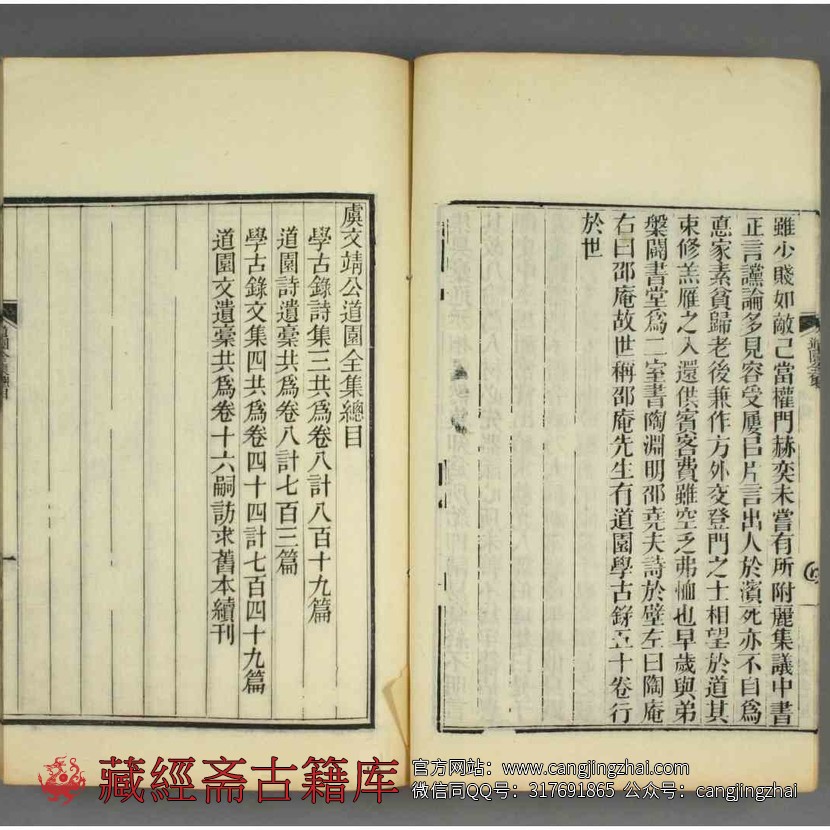 雖少賤如敵己當權門赫奕未嘗有所附麗集議中書
正言讜論多見容受屢㠯片言出人於濱死亦不自爲
悳家素貧歸老後兼作方外交登門之士相望於道其
束修羔雁之入還供賓客費雖空乏弗恤也早歲與弟
槃闢書堂爲二室書陶淵明邵堯夫詩於壁左曰陶庵
右曰邵庵故世稱邵庵先生有道園學古錄五十卷行
於世
虞文靖公道園全集總目
學古錄詩集三共爲卷八計八百十九篇
道園詩遺稾共爲卷八計七百三篇
學古錄文集四共爲卷四十四計七百四十九篇
道園文遺稾共爲卷十六嗣訪求舊本續刊
一
藏經斋古籍库
官方网站：www.cangjingzhai.com
微信同QQ号：317691865 公众号：cangjingzhai